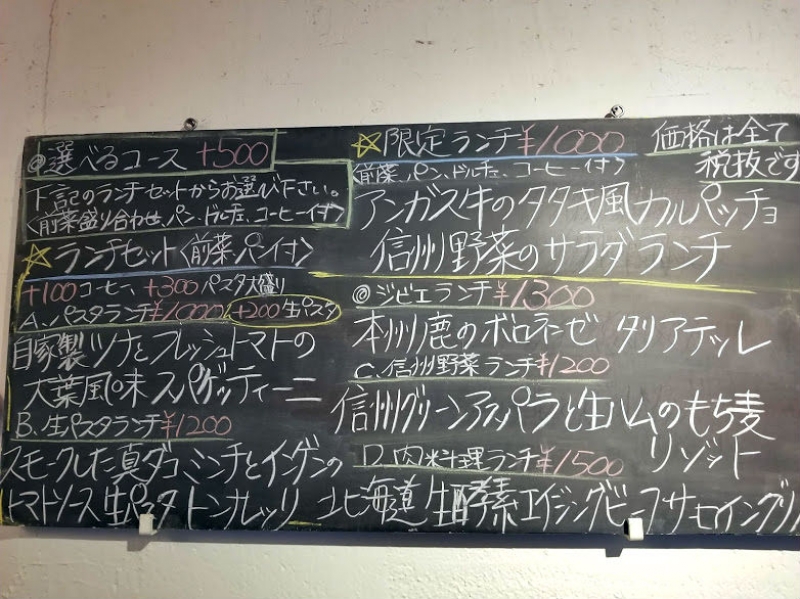 ◎選べるコース +500
下記のランチセットからお選び下さい。
〈前菜盛り合わせ、パン、ドルチェ、コーヒー付〉
☆ランチセット〈前菜、パン付〉
+100コーヒー、+300パスタ大盛り
A.パスタランチ¥1000 +200生パスタ
自家製ツナとフレッシュトマトの
大葉風味スパゲッティーニ
B.生パスタランチ¥1200
スモークした真ダコミンチとインゲンの
トマトソース生パスタトンナレッリ
☆限定ランチ¥1000
〈前菜、パン、ドルチェ、コーヒー付〉
価格は全て
税抜です
アンガス牛のタタキ風カルパッチョ
信州野菜のサラダランチ
◎ジビエランチ¥1300
本州鹿のボロネーゼ タリアテッレ
C.信州野菜ランチ¥1200
信州グリーンアスパラと生ハムのもち麦
リゾット
D.肉料理ランチ¥1500
北海道生酵素エイジングビーフサセイングリ